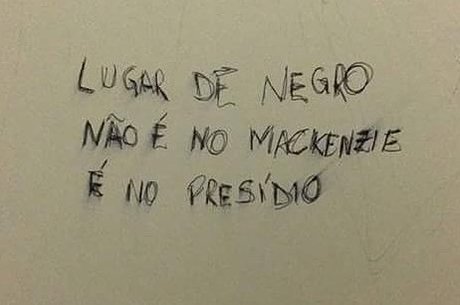 LUGAR DE NEGRO
NÃO É NO MACKENZIE
É NO PRESÍDIO